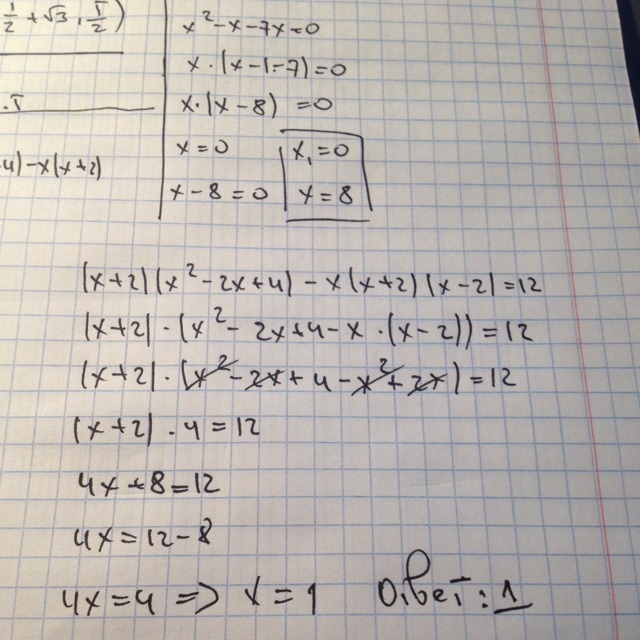 1/2 + √3, 5/2)
x² - x - 7x = 0
x · (x - 1 - 7) = 0
x · (x - 8) = 0
x = 0
x₁ = 0
x - 8 = 0
x = 8
4) - x(x + 2)
(x + 2)(x² - 2x + 4) - x(x + 2)(x - 2) = 12
(x + 2) · (x² - 2x + 4 - x · (x - 2)) = 12
(x + 2) · (x² - 2x + 4 - x² + 2x) = 12
(x + 2) · 4 = 12
4x + 8 = 12
4x = 12 - 8
4x = 4 => x = 1 Ответ: 1